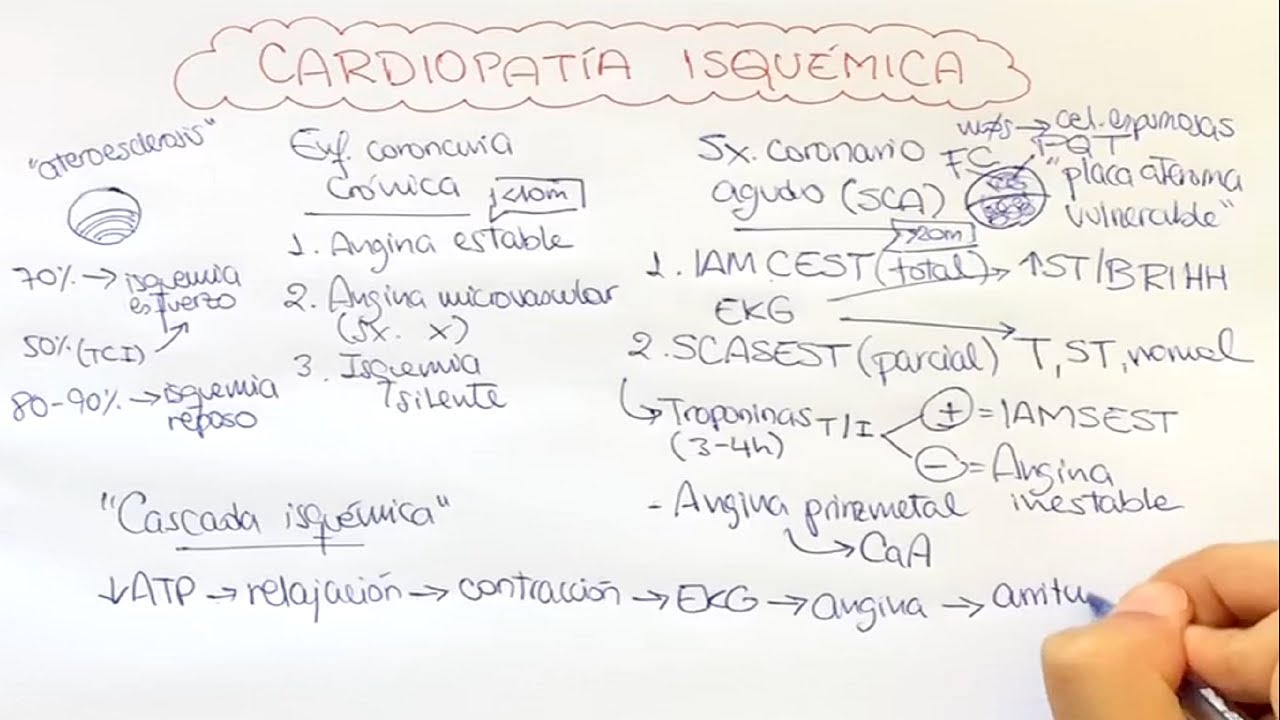 CARDIOPATÍA ISQUÉMICA
"ateroesclerosis"
70% → isquemia
esfuerzo
50% (TCI)
80-90% → isquemia
reposo
Enf. coronaria
crónica
<10m
1. Angina estable
2. Angina microvascular
(Sx. X)
3. Isquemia
silente
Sx. coronario
agudo (SCA)
>20m
→ cel. espumosas
FC
PQT
"placa ateroma
vulnerable"
1. IAMCEST (total) → ↑ST/BRIHH
EKG
2. SCASEST (parcial) T, ST, normal
Troponinas T/I
(3-4h)
+ = IAMSEST
- = Angina
inestable
- Angina prinzmetal
→ CaA
"Cascada isquémica"
↓ATP → relajación → contracción → EKG → angina →